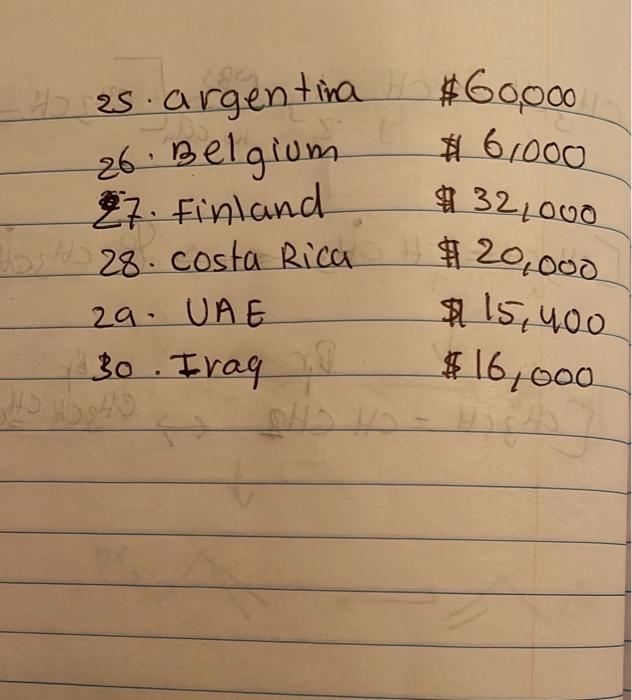 25. argentina $60,000
26. Belgium $ 6,000
27. Finland $ 32,000
28. Costa Rica $ 20,000
29. UAE $ 15,400
30. Iraq $ 16,000